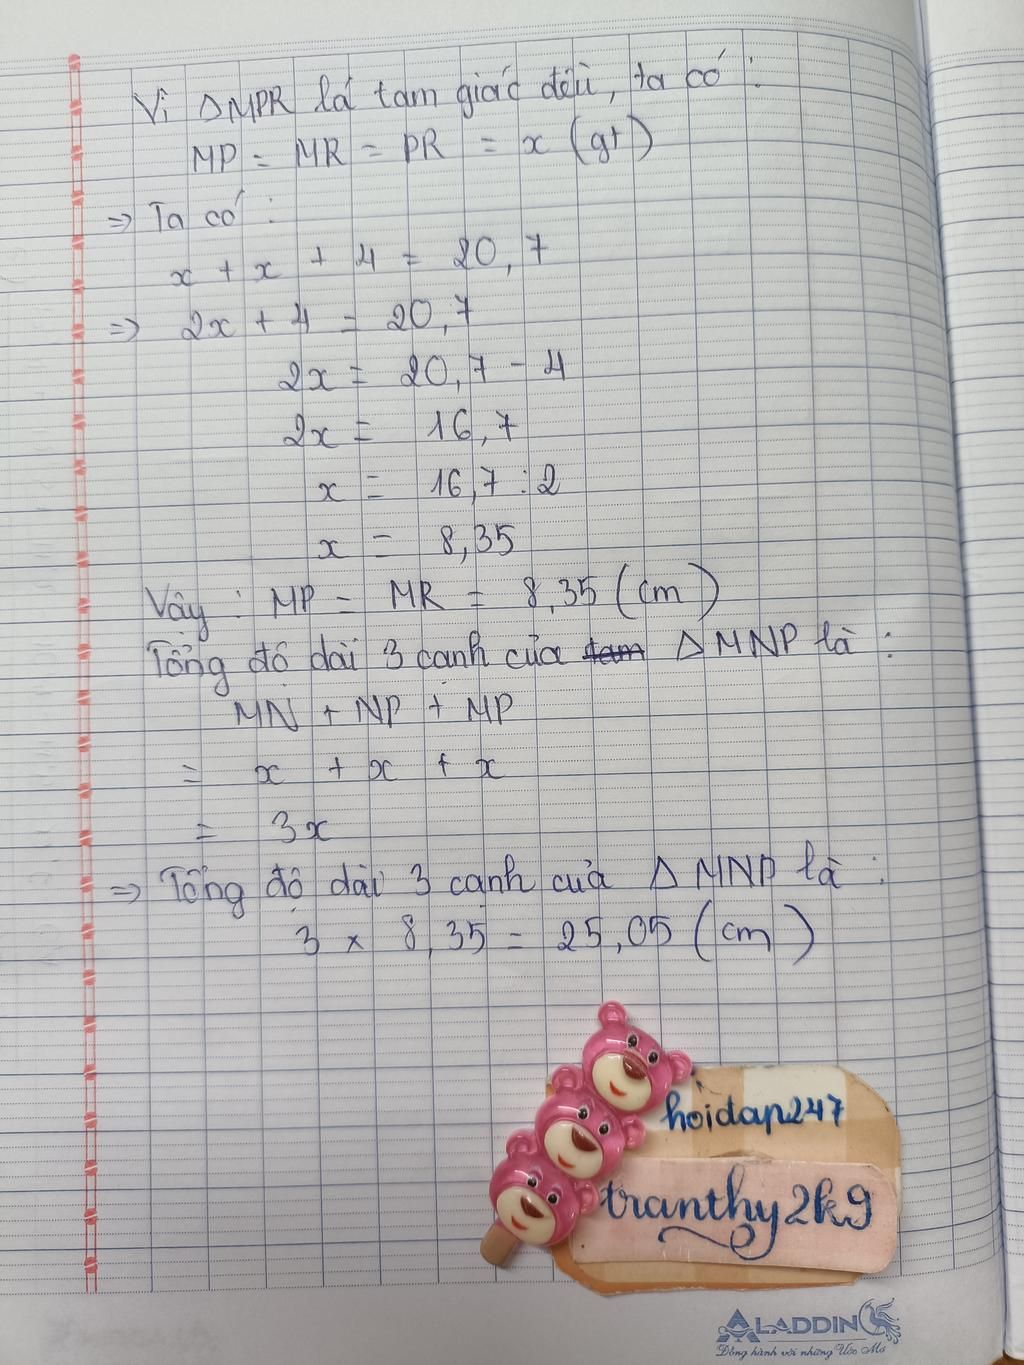 Vì ΔMPR là tam giác đều, ta có :
MP = MR = PR = x (gt)
=> Ta có :
x + x + 4 = 20,7
=> 2x + 4 = 20,7
2x = 20,7 - 4
2x = 16,7
x = 16,7 : 2
x = 8,35
Vậy : MP = MR = 8,35 (cm)
Tổng độ dài 3 cạnh của tam ΔMNP là :
MN + NP + MP
= x + x + x
= 3x
=> Tổng độ dài 3 cạnh của ΔMNP là :
3 x 8,35 = 25,05 (cm)
hoidap247
tranthy2k9
ALADDIN
Đồng hành với những Ước Mơ